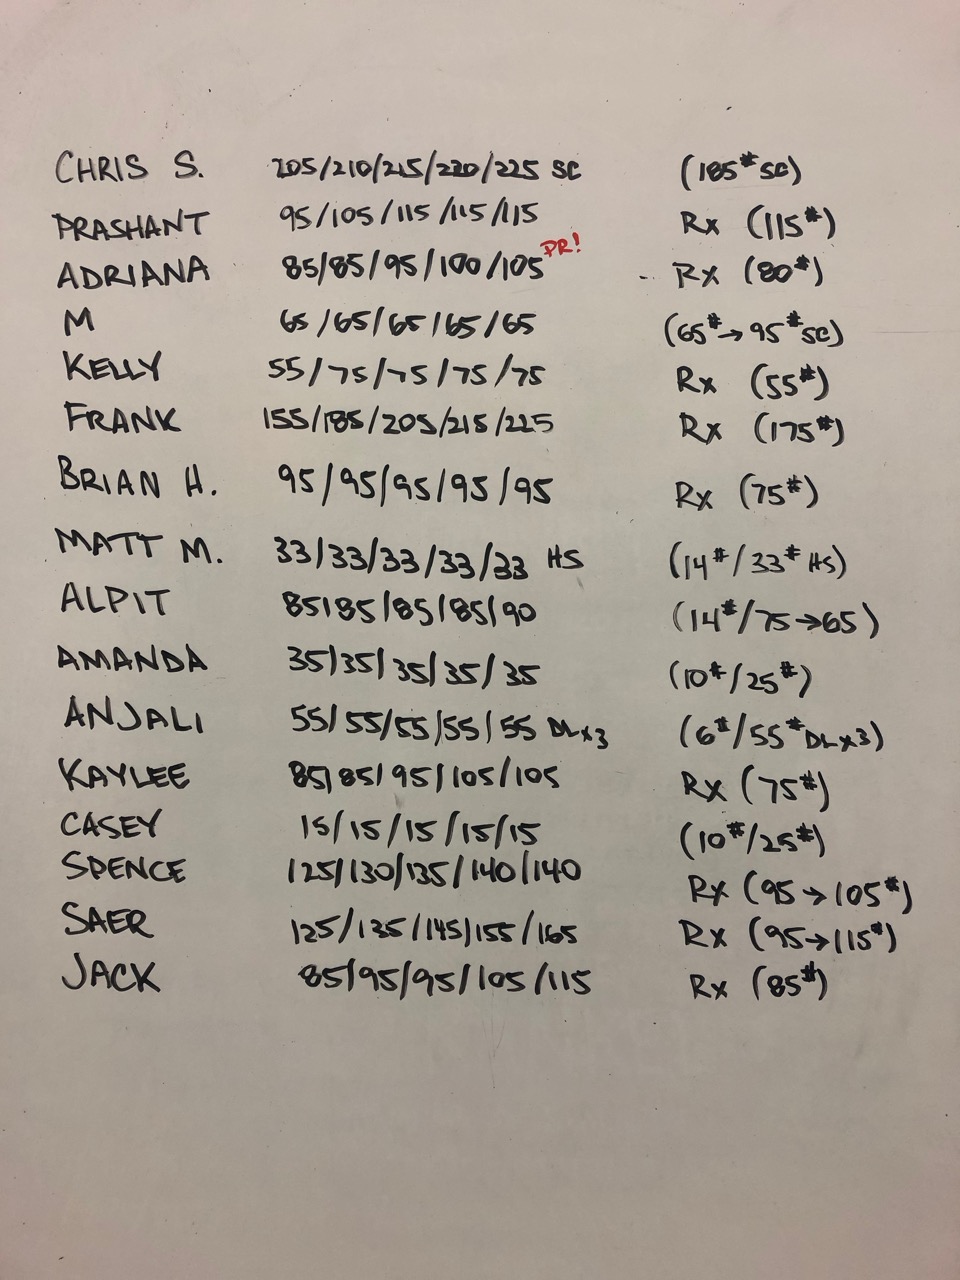 CHRIS S. 205/210/215/220/225 SC (185# SC)
PRASHANT 95/105/115/115/115 Rx (115#)
ADRIANA 85/85/95/100/105 PR! Rx (80#)
M 65/65/65/65/65 (65#→95# SC)
KELLY 55/75/75/75/75 Rx (55#)
FRANK 155/185/205/215/225 Rx (175#)
BRIAN H. 95/95/95/95/95 Rx (75#)
MATT M. 33/33/33/33/33 HS (14#/33# HS)
ALPIT 85/85/85/85/90 (14#/75→65)
AMANDA 35/35/35/35/35 (10#/25#)
ANJALI 55/55/55/55/55 DLx3 (6#/55# DLx3)
KAYLEE 85/85/95/105/105 Rx (75#)
CASEY 15/15/15/15/15 (10#/25#)
SPENCE 125/130/135/140/140 Rx (95→105#)
SAER 125/135/145/155/165 Rx (95→115#)
JACK 85/95/95/105/115 Rx (85#)